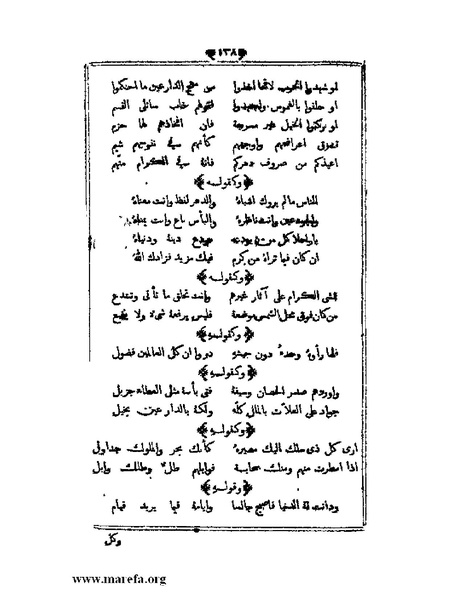 ﴿١٣٨﴾
لو شهدوا الحرب لاقحا اخذوا من مهج الدارعين ما احتكموا
او حلفوا بالغموس واجتهدوا فقولهم خاب سائلي القسم
او ركبوا الخيل غير مسرجة فان افخاذهم لها حزم
تشرق اعراضهم واوجههم كأنهم في نفوسهم شيم
اعيذكم من صروف دهركم فانه في الكرام متهم
﴿وكقوله﴾
الناس مالم يروك اشباه والدهر لفظ وانت معناه
والجود عين وانت ناظرها والبأس باع وانت يمناه
يا راحلا كل من يودعه مودع دينه ودنياه
ان كان فيما تراه من كرم فيك مزيد فزادك الله
﴿وكقوله﴾
تمشي الكرام على آثار غيرهم وانت تخلق ما تأتي وتبتدع
من كان فوق محل الشمس موضعه فليس يرفعه شيء ولا يضع
﴿وكقوله﴾
فلما رأوه وحده دون جيشه دروا ان كل العالمين فضول
﴿وكقوله﴾
واوردهم صدر الحصان وسيفه فتى بأسه مثل العطاء جزيل
جواد على العلات بالمال كله ولكنه بالدارعين بخيل
﴿وكقوله﴾
ارى كل ذي ملك اليك مصيره كأنك بحر والملوك جداول
اذا امطرت منهم ومنك سحابة فوابلهم طل وطلك وابل
﴿وقوله﴾
ودانت له الدنيا فاصبح جالسا وايامه فيما يريد قيام
وكل
www.marefa.org